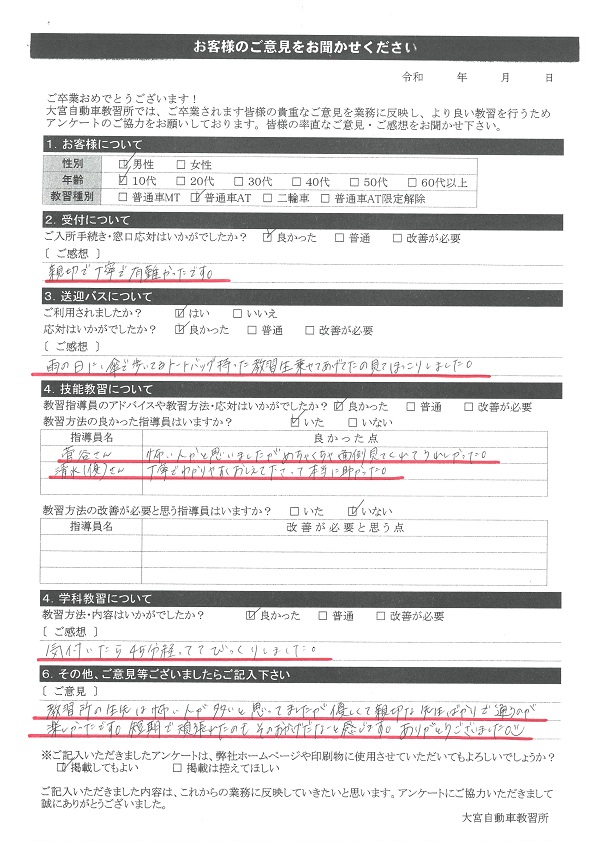 お客様のご意見をお聞かせください
令和 年 月 日
ご卒業おめでとうございます!
大宮自動車教習所では、ご卒業されます皆様の貴重なご意見を業務に反映し、より良い教習を行うため
アンケートのご協力をお願いしております。皆様の率直なご意見・ご感想をお聞かせ下さい。
1. お客様について
性別 ☑男性 □女性
年齢 ☑10代 □20代 □30代 □40代 □50代 □60代以上
教習種別 □普通車MT ☑普通車AT □二輪車 □普通車AT限定解除
2. 受付について
ご入所手続き・窓口応対はいかがでしたか? ☑良かった □普通 □改善が必要
[ ご感想 ]
親切で丁寧で有難かったです。
3. 送迎バスについて
ご利用されましたか? ☑はい □いいえ
応対はいかがでしたか? ☑良かった □普通 □改善が必要
[ ご感想 ]
雨の日に傘で歩いてるトートバッグ持った教習生乗せてあげてたの見てほっこりしました。
4. 技能教習について
教習指導員のアドバイスや教習方法・応対はいかがでしたか? ☑良かった □普通 □改善が必要
教習方法の良かった指導員はいますか? ☑いた □いない
指導員名 良かった点
菅谷さん 怖い人かと思いましたがめちゃくちゃ面倒見てくれてうれしかった。
清水(俊)さん 丁寧でわかりやすくおしえて下さって本当に助かった。
教習方法の改善が必要と思う指導員はいますか? □いた ☑いない
指導員名 改善が必要と思う点
4. 学科教習について
教習方法・内容はいかがでしたか? ☑良かった □普通 □改善が必要
[ ご感想 ]
気付いたら45分経っててびっくりしました。
6. その他、ご意見等ございましたらご記入下さい
[ ご意見 ]
教習所の先生は怖い人が多いと思ってましたが優しくて親切な先生ばかりで通うのが
楽しかったです。短期で頑張れたのもそのおかげだなと感じます。ありがとうございました。
※ご記入いただきましたアンケートは、弊社ホームページや印刷物に使用させていただいてもよろしいでしょうか?
☑掲載してもよい □掲載は控えてほしい
ご記入いただきました内容は、これからの業務に反映していきたいと思います。アンケートにご協力いただきまして
誠にありがとうございました。
大宮自動車教習所